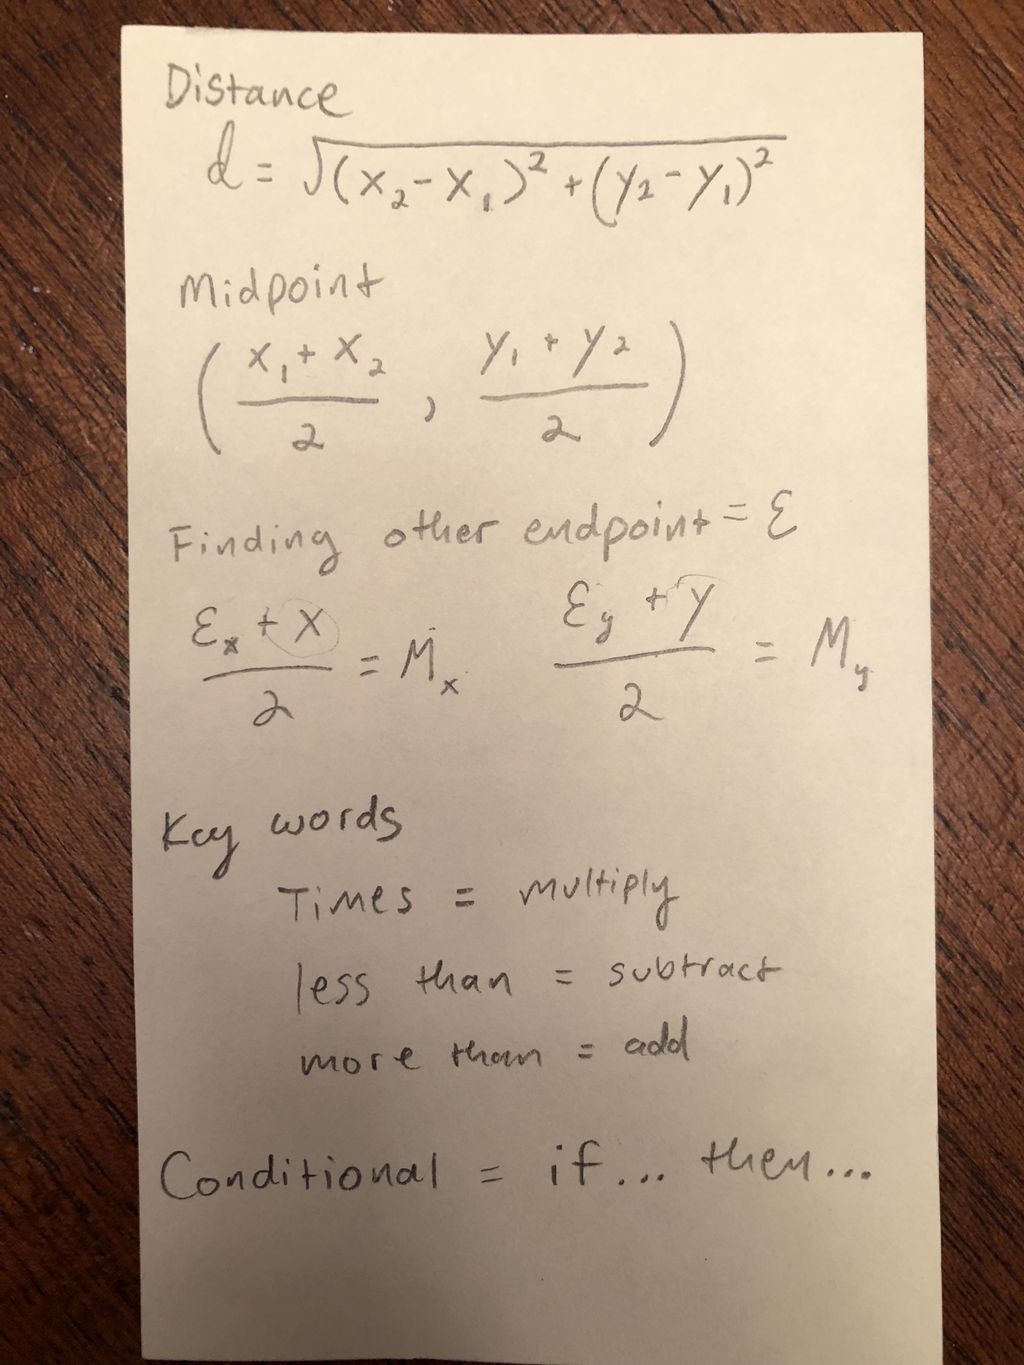 Distance
d = √(x₂ - x₁)² + (y₂ - y₁)²
Midpoint
( x₁ + x₂ / 2 , y₁ + y₂ / 2 )
Finding other endpoint = Ɛ
Ɛₓ + x / 2 = Mₓ    Ɛy + y / 2 = My
Key words
Times = multiply
less than = subtract
more than = add
Conditional = if... then...